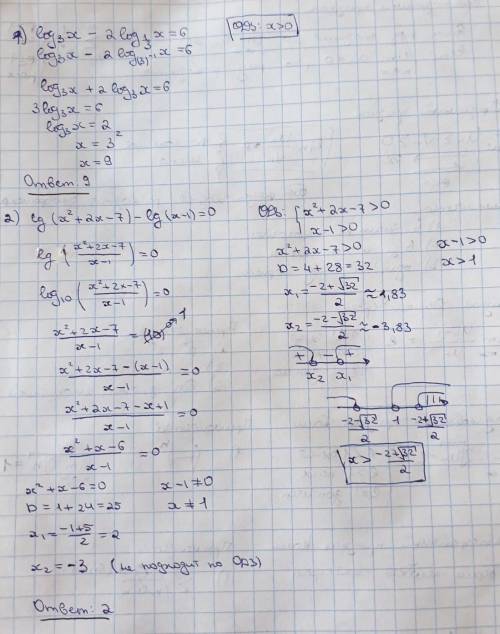 1) log₃x − 2log_{1/3} x = 6
ОДЗ: x>0
log₃x − 2log_{(3)⁻¹} x = 6
log₃x + 2log₃x = 6
3log₃x = 6
log₃x = 2
x = 3²
x = 9
Ответ: 9
2) lg(x²+2x−7) − lg(x−1) = 0
lg((x²+2x−7)/(x−1)) = 0
log₁₀((x²+2x−7)/(x−1)) = 0
(x²+2x−7)/(x−1) = 10⁰ 1
(x²+2x−7−(x−1))/(x−1) = 0
(x²+2x−7−x+1)/(x−1) = 0
(x²+x−6)/(x−1) = 0
x²+x−6=0
x−1≠0
D = 1+24=25
x ≠ 1
x₁ = (−1+5)/2 = 2
x₂ = −3 (не подходит по ОДЗ)
Ответ: 2
ОДЗ: { x²+2x−7>0
x−1>0
x²+2x−7>0
x−1>0
D = 4+28=32
x>1
x₁ = (−2+√32)/2 ≈ 1,83
x₂ = (−2−√32)/2 ≈ −3,83
+ − +
x₂ x₁
(−2−√32)/2 1 (−2+√32)/2
x > (−2+√32)/2